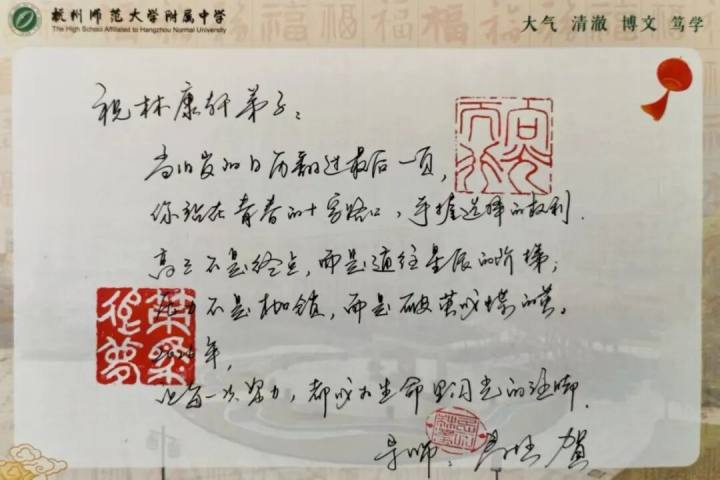 杭州师范大学附属中学
The High School Affiliated to Hangzhou Normal University
大气 清澈 博文 笃学
祝林康轩弟子：
当旧岁的日历翻过最后一页，
你站在青春的十字路口，手握选择的权利.
高三不是终点，而是通往星辰的阶梯；
压力不是枷锁，而是破茧成蝶的茧。
2026年，
让每一次努力，都成为生命里闪光的注脚.
导师： 贺